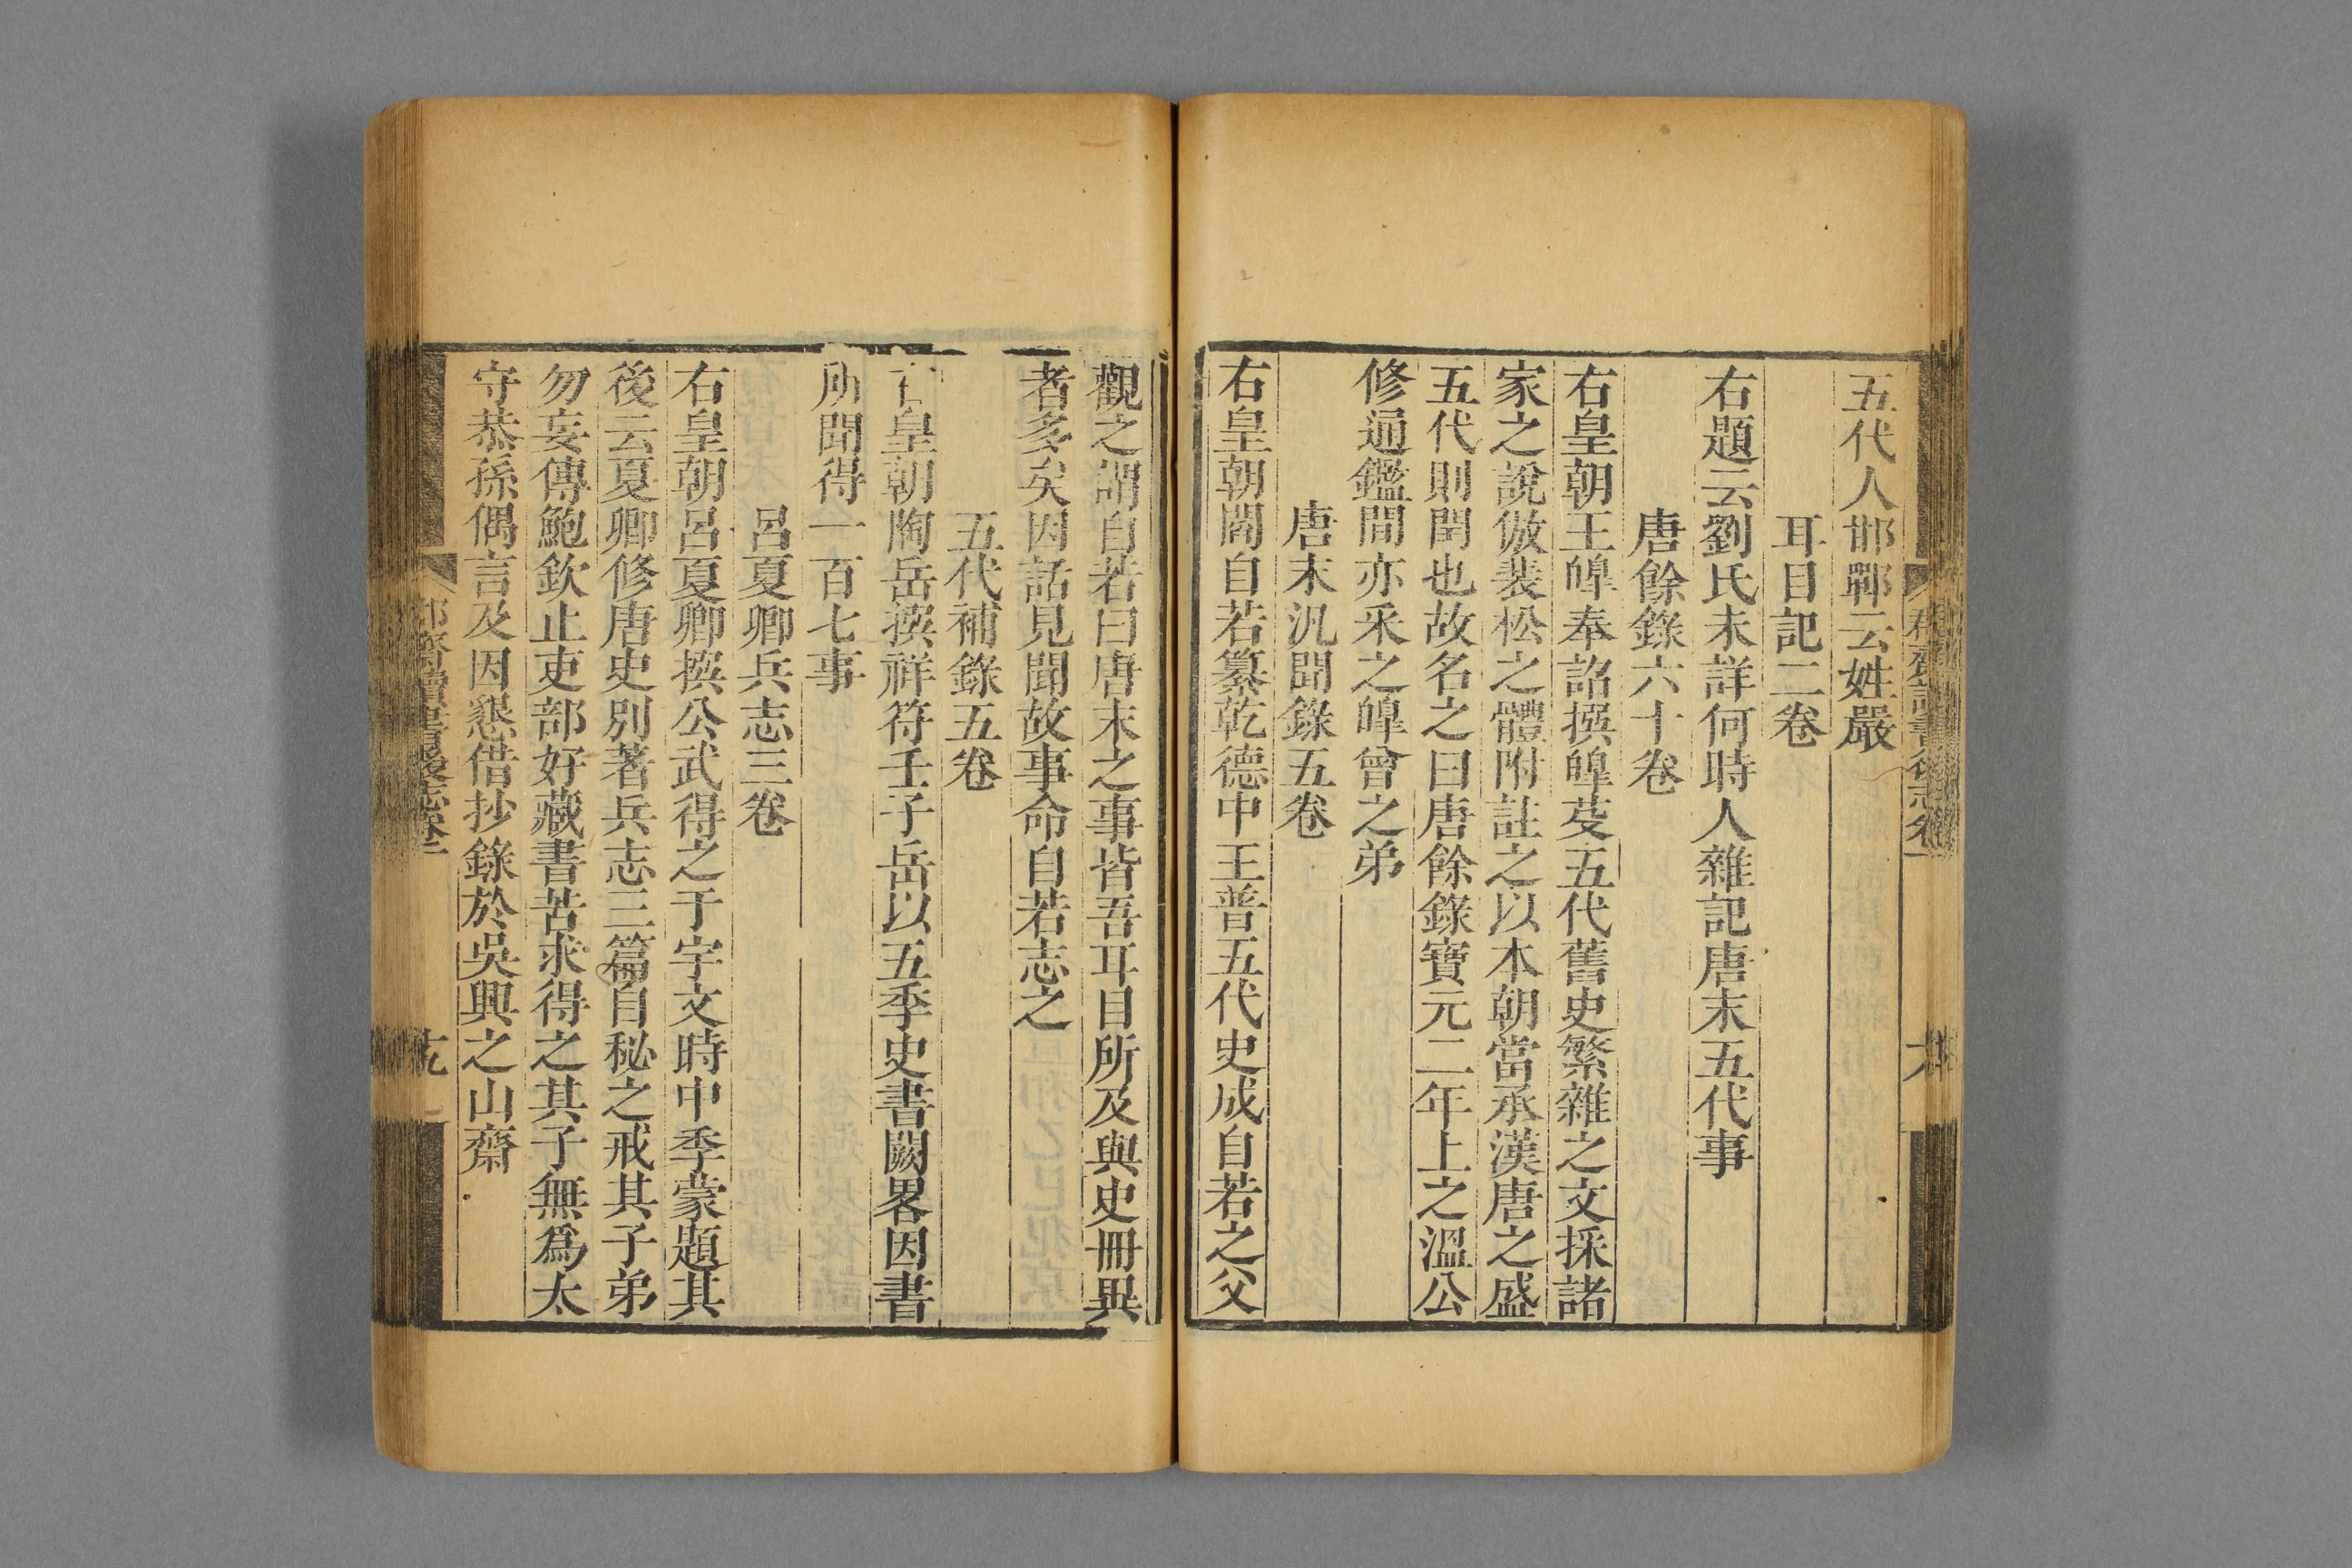 五代人邯鄲云姓嚴
耳目記二卷
右題云劉氏未詳何時人雜記唐末五代事
唐餘錄六十卷
右皇朝王皥奉詔撰皥芟五代舊史繁雜之文採諸
家之說倣裴松之體附註之以本朝當承漢唐之盛
五代則閏也故名之曰唐餘錄寶元二年上之溫公
修通鑑間亦采之皥曾之弟
唐末汎聞錄五卷
右皇朝閻自若纂乾德中王普五代史成自若之父
觀之謂自若曰唐末之事皆吾耳目所及與史冊異
者多矣因話見聞故事命自若志之
五代補錄五卷
右皇朝陶岳撰祥符壬子岳以五季史書闕畧因書
所聞得一百七事
呂夏卿兵志三卷
右皇朝呂夏卿撰公武得之于宇文時中季蒙題其
後云夏卿修唐史別著兵志三篇自秘之戒其子弟
勿妄傳鮑欽止吏部好藏書苦求得之其子無為太
守恭孫偶言及因懇借抄錄於吳興之山齋